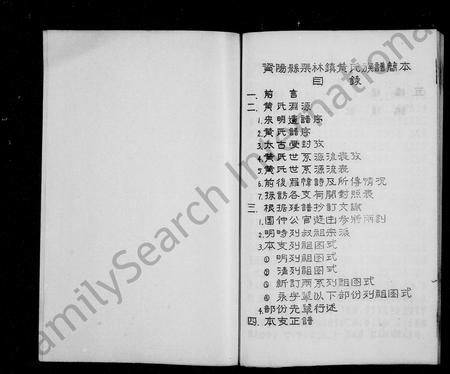 資陽縣梁林鎮黄氏族譜簡本
目錄
一. 前言
二. 黄氏淵源
1. 宗明遺譜序
2. 黄氏譜序
3. 太古受封攷
4. 黄氏世系源流表攷
5. 黄氏世系源流表
6. 前後詩及所傳情况
7. 採訪各支有關對照表
三. 根据残譜抄訂文識
1. 團仲公官廷由参將
2. 明時列叔祖宗派
3. 本支列祖图式
① 明列祖图式
② 清列祖图式
③ 新訂两系列祖图式
④ 永字輩以下部份列祖图式
4. 部份先輩行述
四. 本支正譜
FamilySearch International